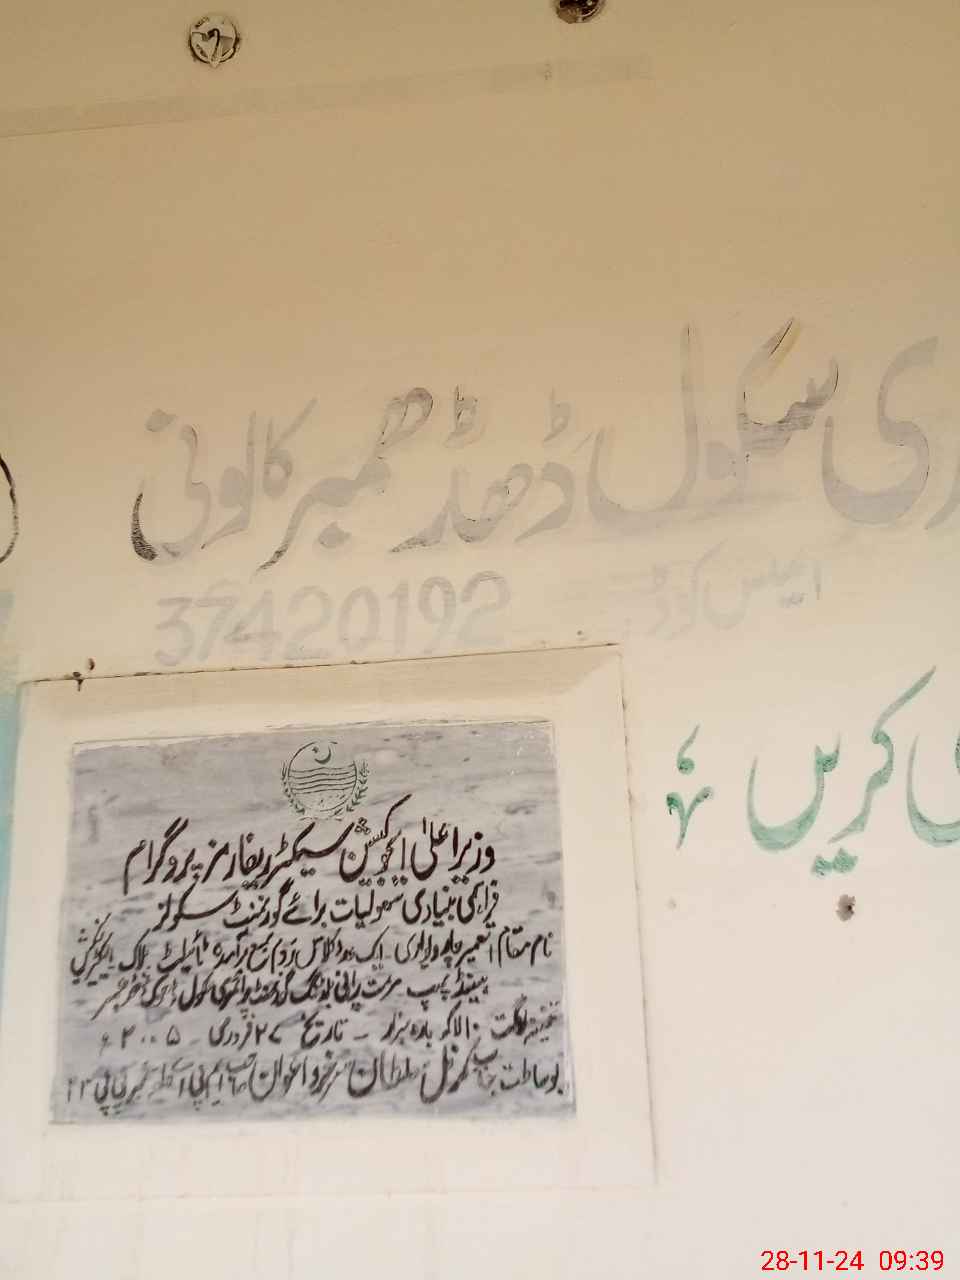 ری سکول ڈھڈھمبر کالونی
ایمس کوڈ 37420192
ی کریں ؟
وزیراعلیٰ ایجوکیشن سیکٹر ریفارمز پروگرام
فراہمی بنیادی سہولیات برائے گورنمنٹ سکولز
نام مقام تعمیر چار دیواری ایک عدد کلاس روم بمع برآمدہ ٹائیلٹ بلاک
ہینڈ پمپ مرمت پرانی بلڈنگ گورنمنٹ پرائمری سکول
تخمینہ لاگت ۱۰ لاکھ بارہ ہزار - تاریخ ۲۷ فروری ۲۰۰۵ء
بوساطت جناب کرنل سلطان سرخرو اعوان صاحب ایم پی اے حلقہ نمبر پی پی ۲۲
28-11-24 09:39